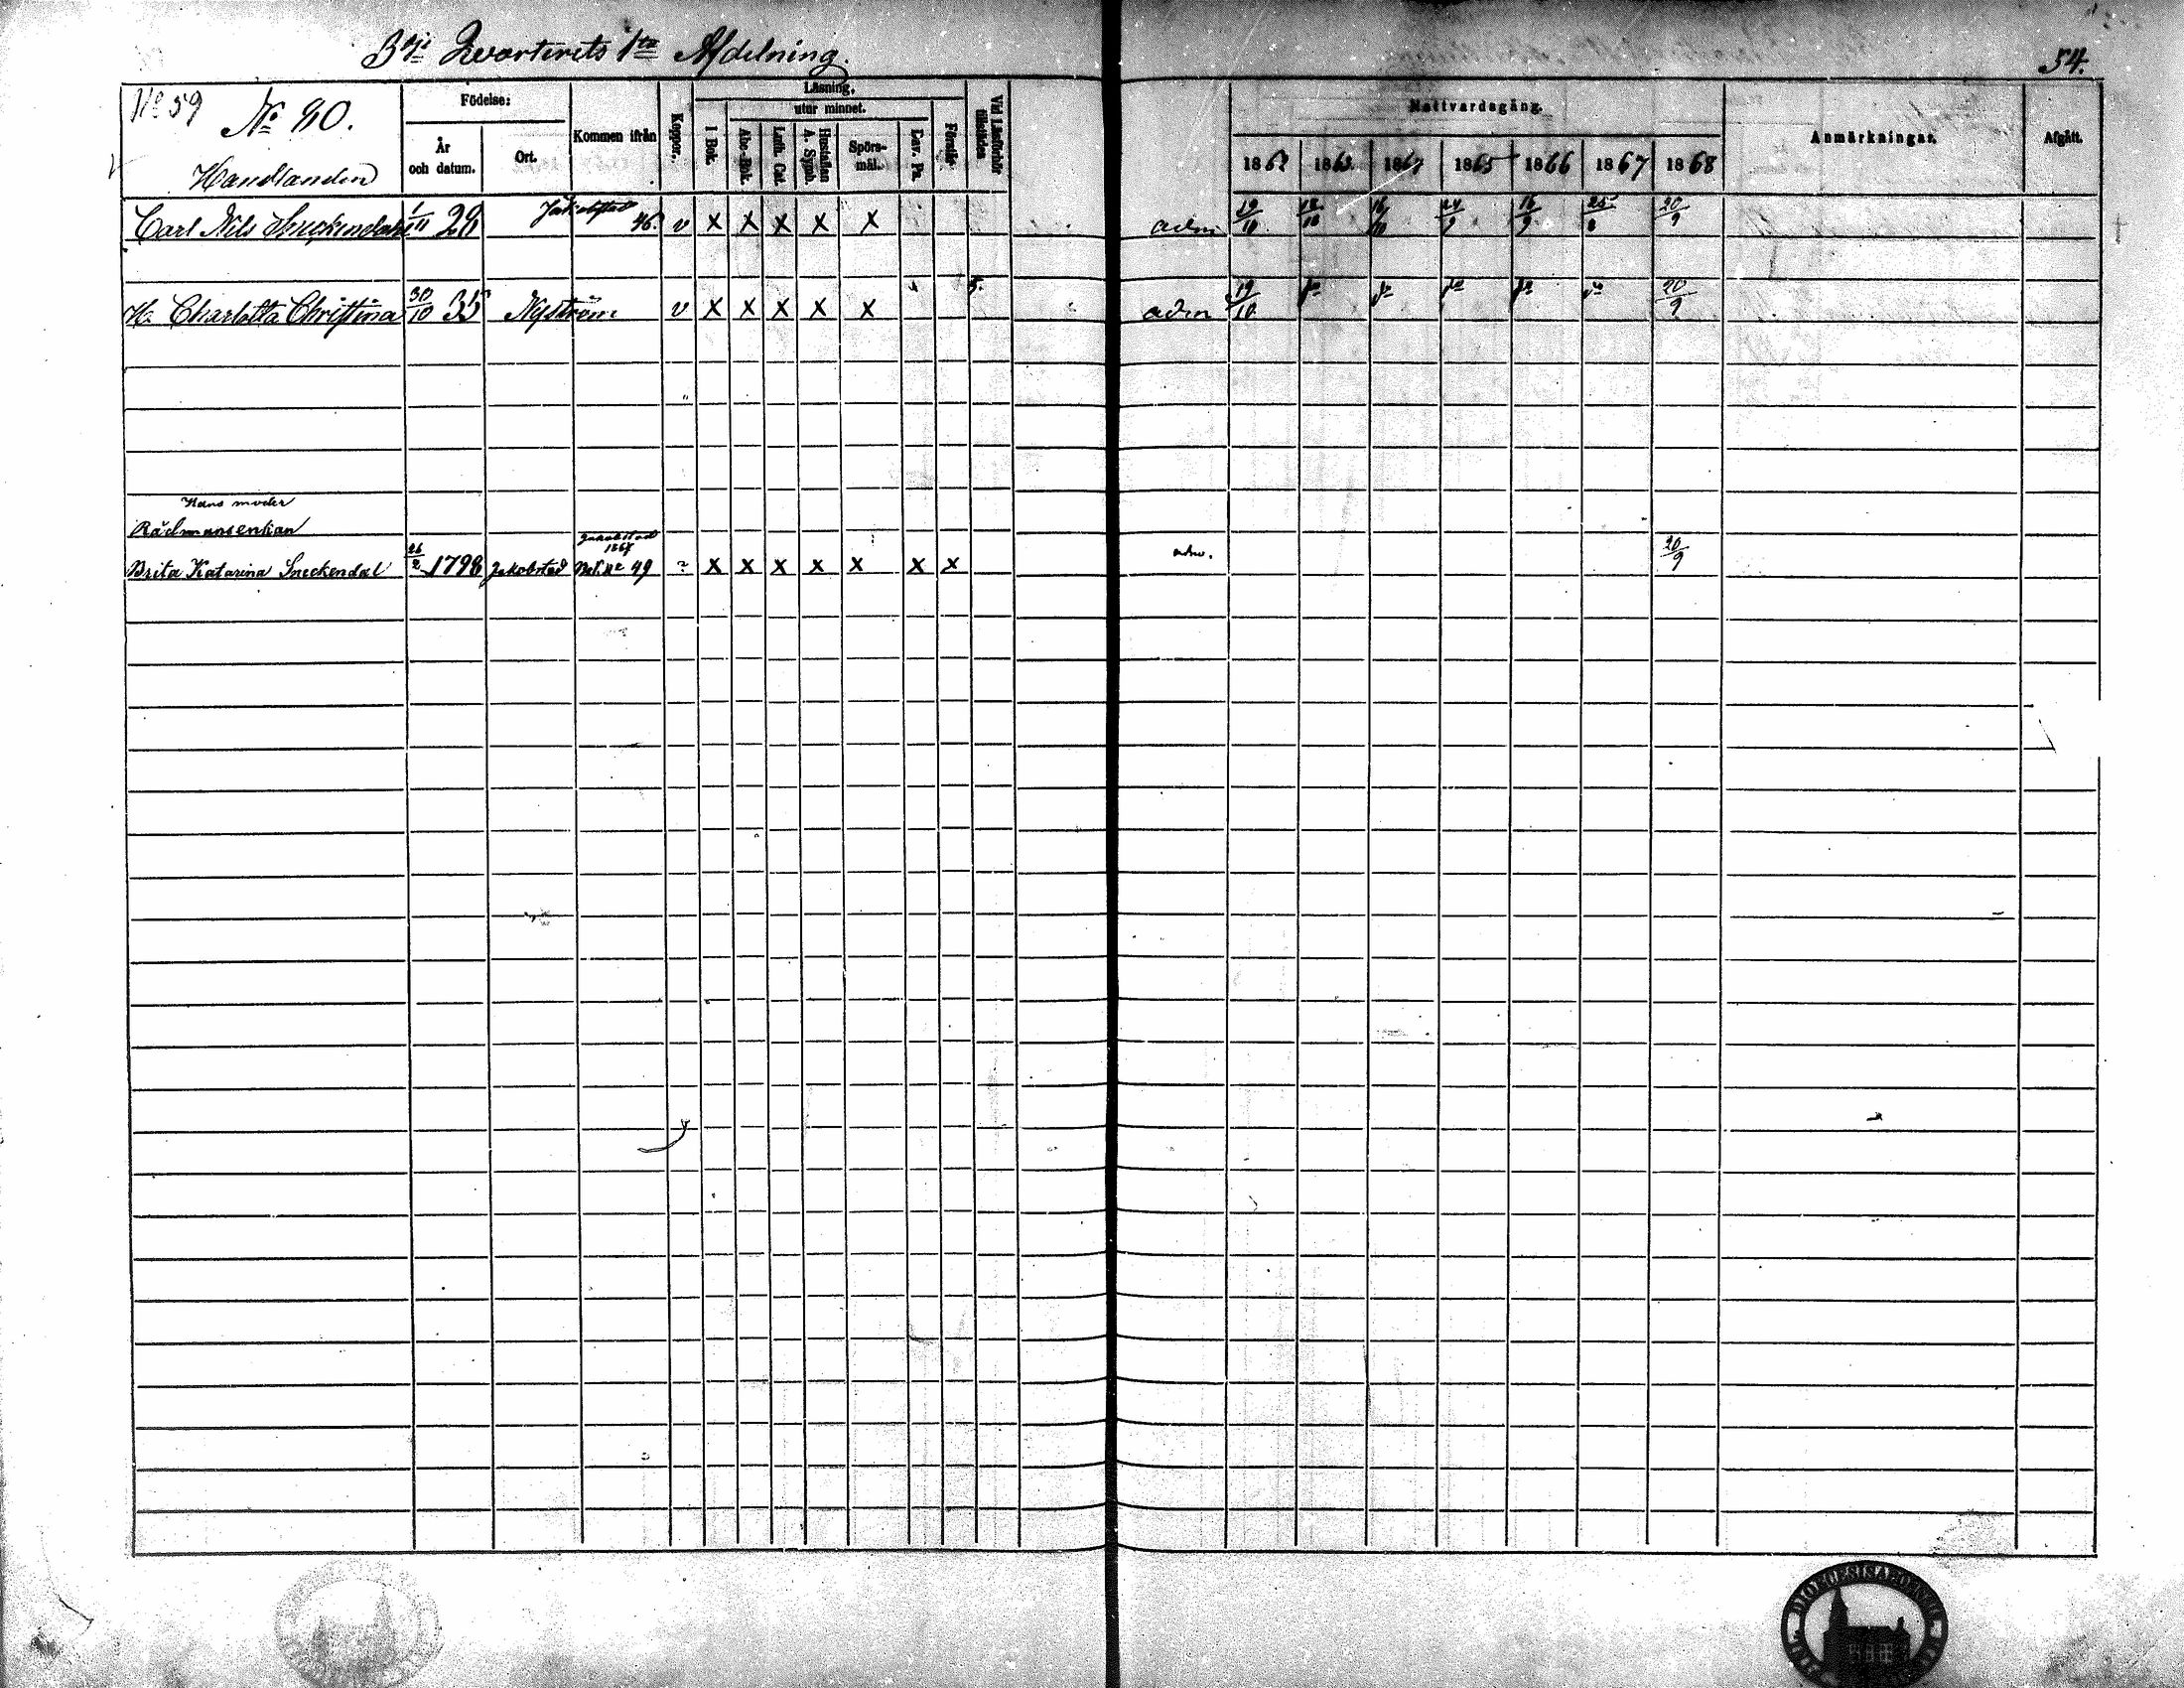 3dje Qvarterets 1sta Afdelning.
54.
No 59
No 80.
Handlanden
Födelse:
År och datum.
Ort.
Kommen ifrån
Koppor.
Läsning.
I Bok.
utur minnet.
Abc-Bok.
Luth. Cat.
Hustaflan A. Symb.
Spörs-mål.
Dav. Ps.
Förstår
Vid Läseförhör tillstädes
Nattvardsgång.
1862 1863 1864 1865 1866 1867 1868
Anmärkningar.
Afgått.
Carl Nils Sneckendahl 1/11 28 Jakobstad 46. v x x x x x adm 19/10 18/10 16/10 24/9 16/9 25/8 20/9
H. Charlotta Christina 30/10 35 Nyström v x x x x x 5. adm 19/10 do do do do do 20/9
Hans moder
Rådmansenkan
Jakobstad
Brita Katarina Sneckendal 26/2 1798 Jakobstad 49 ? x x x x x x x adm. 20/9
DIOECESIS ABOENSIS